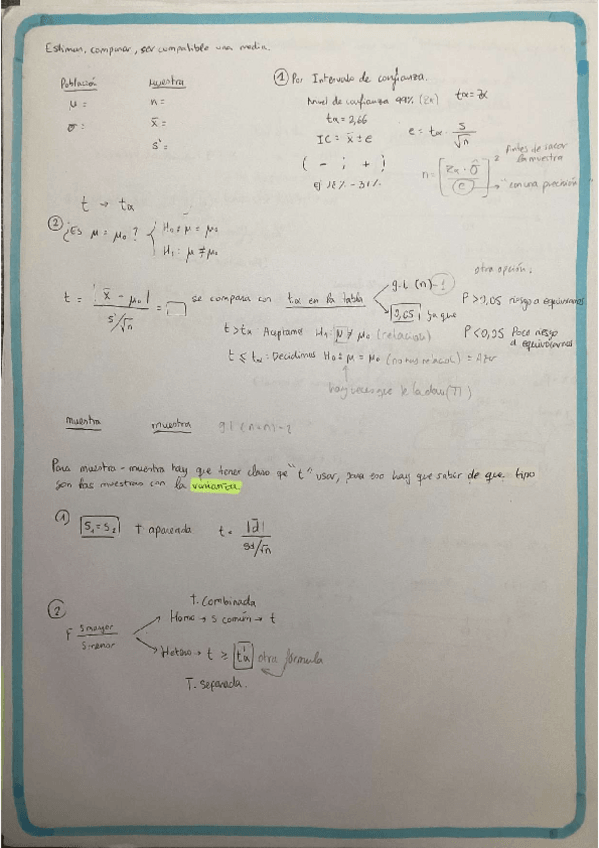 Estimar, comparar, ser compatible una media.
Población
μ =
σ =
muestra
n =
x̄ =
s² =
① Por Intervalo de confianza.
Nivel de confianza 99% (Zα) tα = Zα
tα = 2,66
IC = x̄ ± e
e = tα · s/√n
( - ; + )
ej 12% - 31%
Antes de sacar la muestra
n = [Zα · σ̂ / e]²
"con una precisión"
t → tα
② ¿Es μ = μ₀? { H₀: μ = μ₀
H₁: μ ≠ μ₀
t = |x̄ - μ₀| / s/√n = □ se compara con tα en la tabla
g.l (n)-1
0,05
otra opción:
P > 0,05 riesgo a equivocarnos
P < 0,05 Poco riesgo a equivocarnos
t > tα: Aceptamos H₁: μ ≠ μ₀ (relación)
t ≤ tα: Decidimos H₀: μ = μ₀ (no hay relación) = Azar
hay veces que te la dan
muestra muestra gl (n+n)-2
Para muestra - muestra hay que tener claro qe "t" usar, para eso hay que saber de que tipo
son las muestras con la varianza
① S₁ = S₂ T apareada t = |d̄| / sd/√n
② F Smayor / Smenor
T. Combinada
Homo → s común → t
Hetero → t ≥ t'α otra fórmula
T. separada.